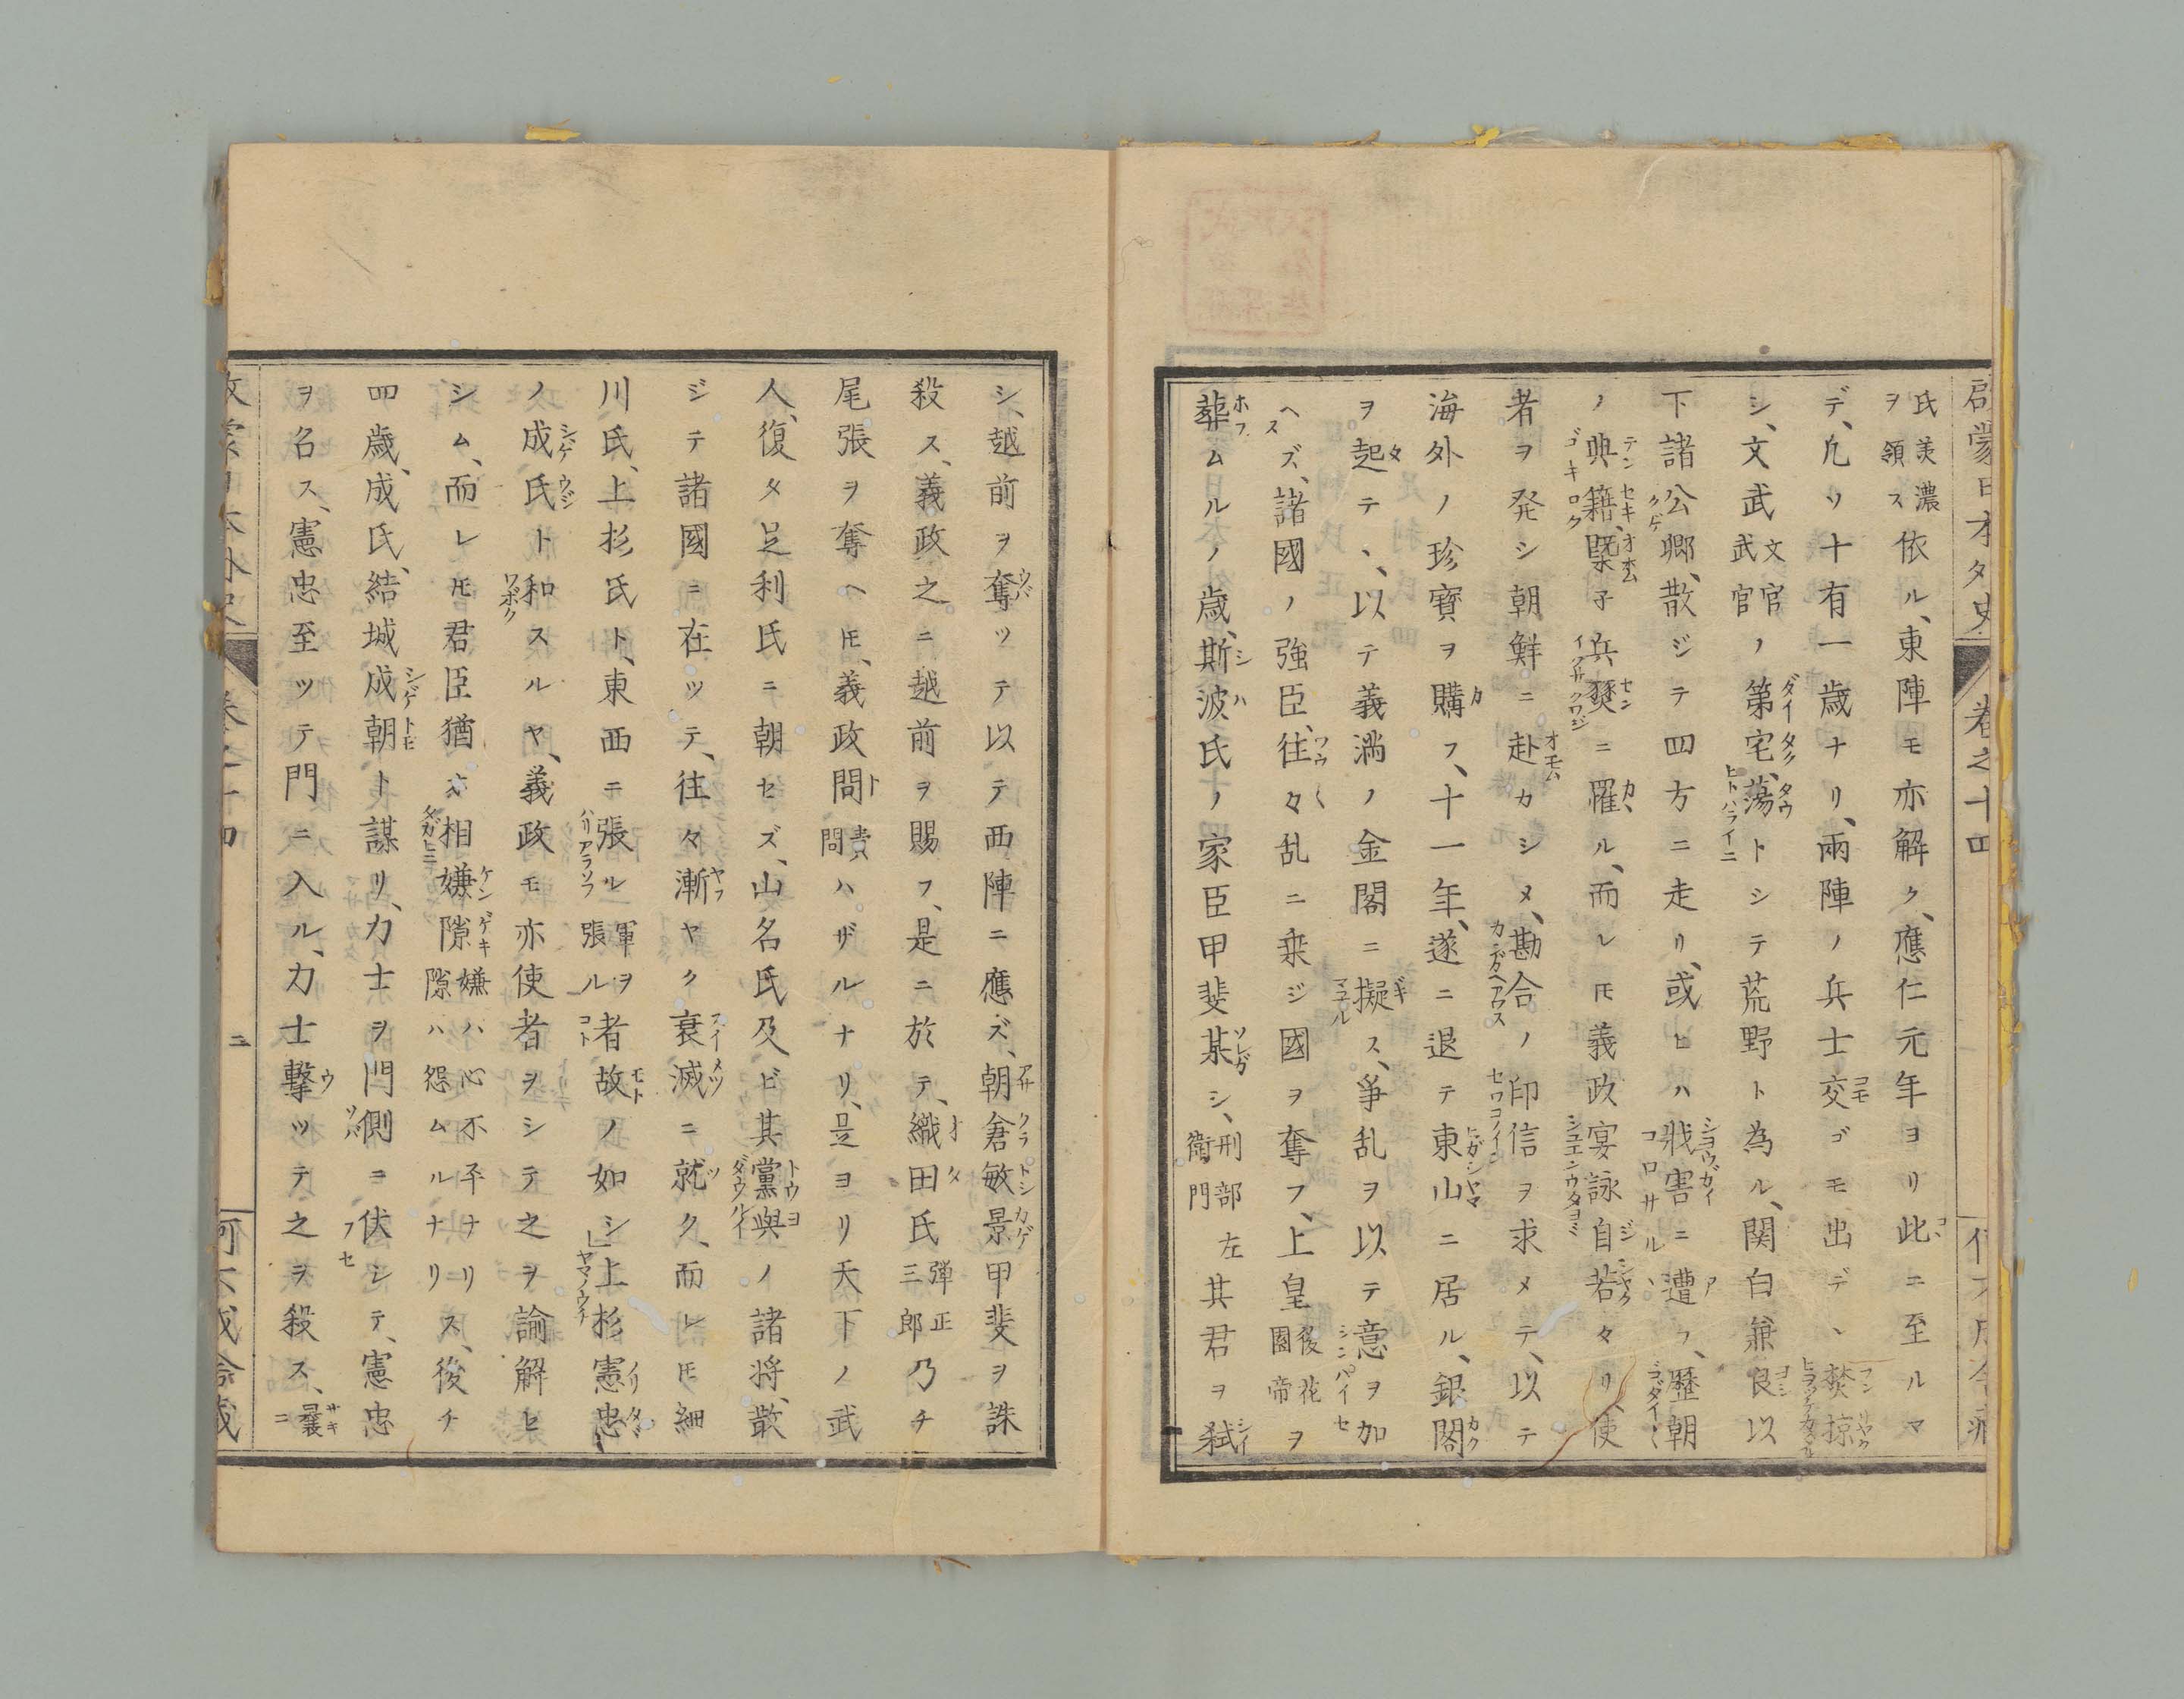 啓蒙日本外史 卷之十四
氏美濃ヲ領ス依ル、東陣モ亦解ク、應仁元年ヨリ此ニ至ルマ
デ、凢ソ十有一歳ナリ、兩陣ノ兵士交ゴモ出デ、焚掠
シ、文武文官武官ノ第宅、蕩トシテ荒野ト為ル、関白兼良以
下諸公卿、散ジテ四方ニ走リ、或ヒハ戕害ニ遭フ、歴朝
ノ典籍、槩子兵燹ニ罹ル、而レ𪜈義政宴詠自若タリ、使
者ヲ発シ朝鮮ニ赴カシメ、勘合ノ印信ヲ求メテ、以テ
海外ノ珍寶ヲ購フ、十一年、遂ニ退テ東山ニ居ル、銀閣
ヲ起テヽ、以テ義満ノ金閣ニ擬ス、爭乱ヲ以テ意ヲ加
ヘズ、諸國ノ強臣、往々乱ニ乗ジ國ヲ奪フ、上皇後花園帝ヲ
葬ムルノ歳、斯波氏ノ家臣甲斐某シ、刑部左衛門其君ヲ弑
シ、越前ヲ奪ツテ以テ西陣ニ應ズ、朝倉敏景甲斐ヲ誅
殺ス、義政之ニ越前ヲ賜フ、是ニ於テ、織田氏彈正三郎乃チ
尾張ヲ奪ヘ𪜈、義政問責問ハザルナリ、是ヨリ天下ノ武
人、復タ足利氏ニ朝セズ、山名氏及ビ其黨與ノ諸将、散
ジテ諸國ニ在ツテ、往々漸ヤク衰滅ニ就ク、而レ𪜈細
川氏、上杉氏ト、東西ニ張ル軍ヲ張ル者故ノ如シ」上杉憲忠
ノ成氏ト和スルヤ、義政モ亦使者ヲシテ之ヲ諭解セ
シム、而レ𪜈君臣猶ホ相嫌隙嫌ハ心不平ナリ隙ハ怨ムルナリス、後チ
四歳、成氏、結城成朝ト謀リ、力士ヲ門側ニ伏シテ、憲忠
ヲ名ス、憲忠至ツテ門ニ入ル、力士撃ツテ之ヲ殺ス、曩ニ
二